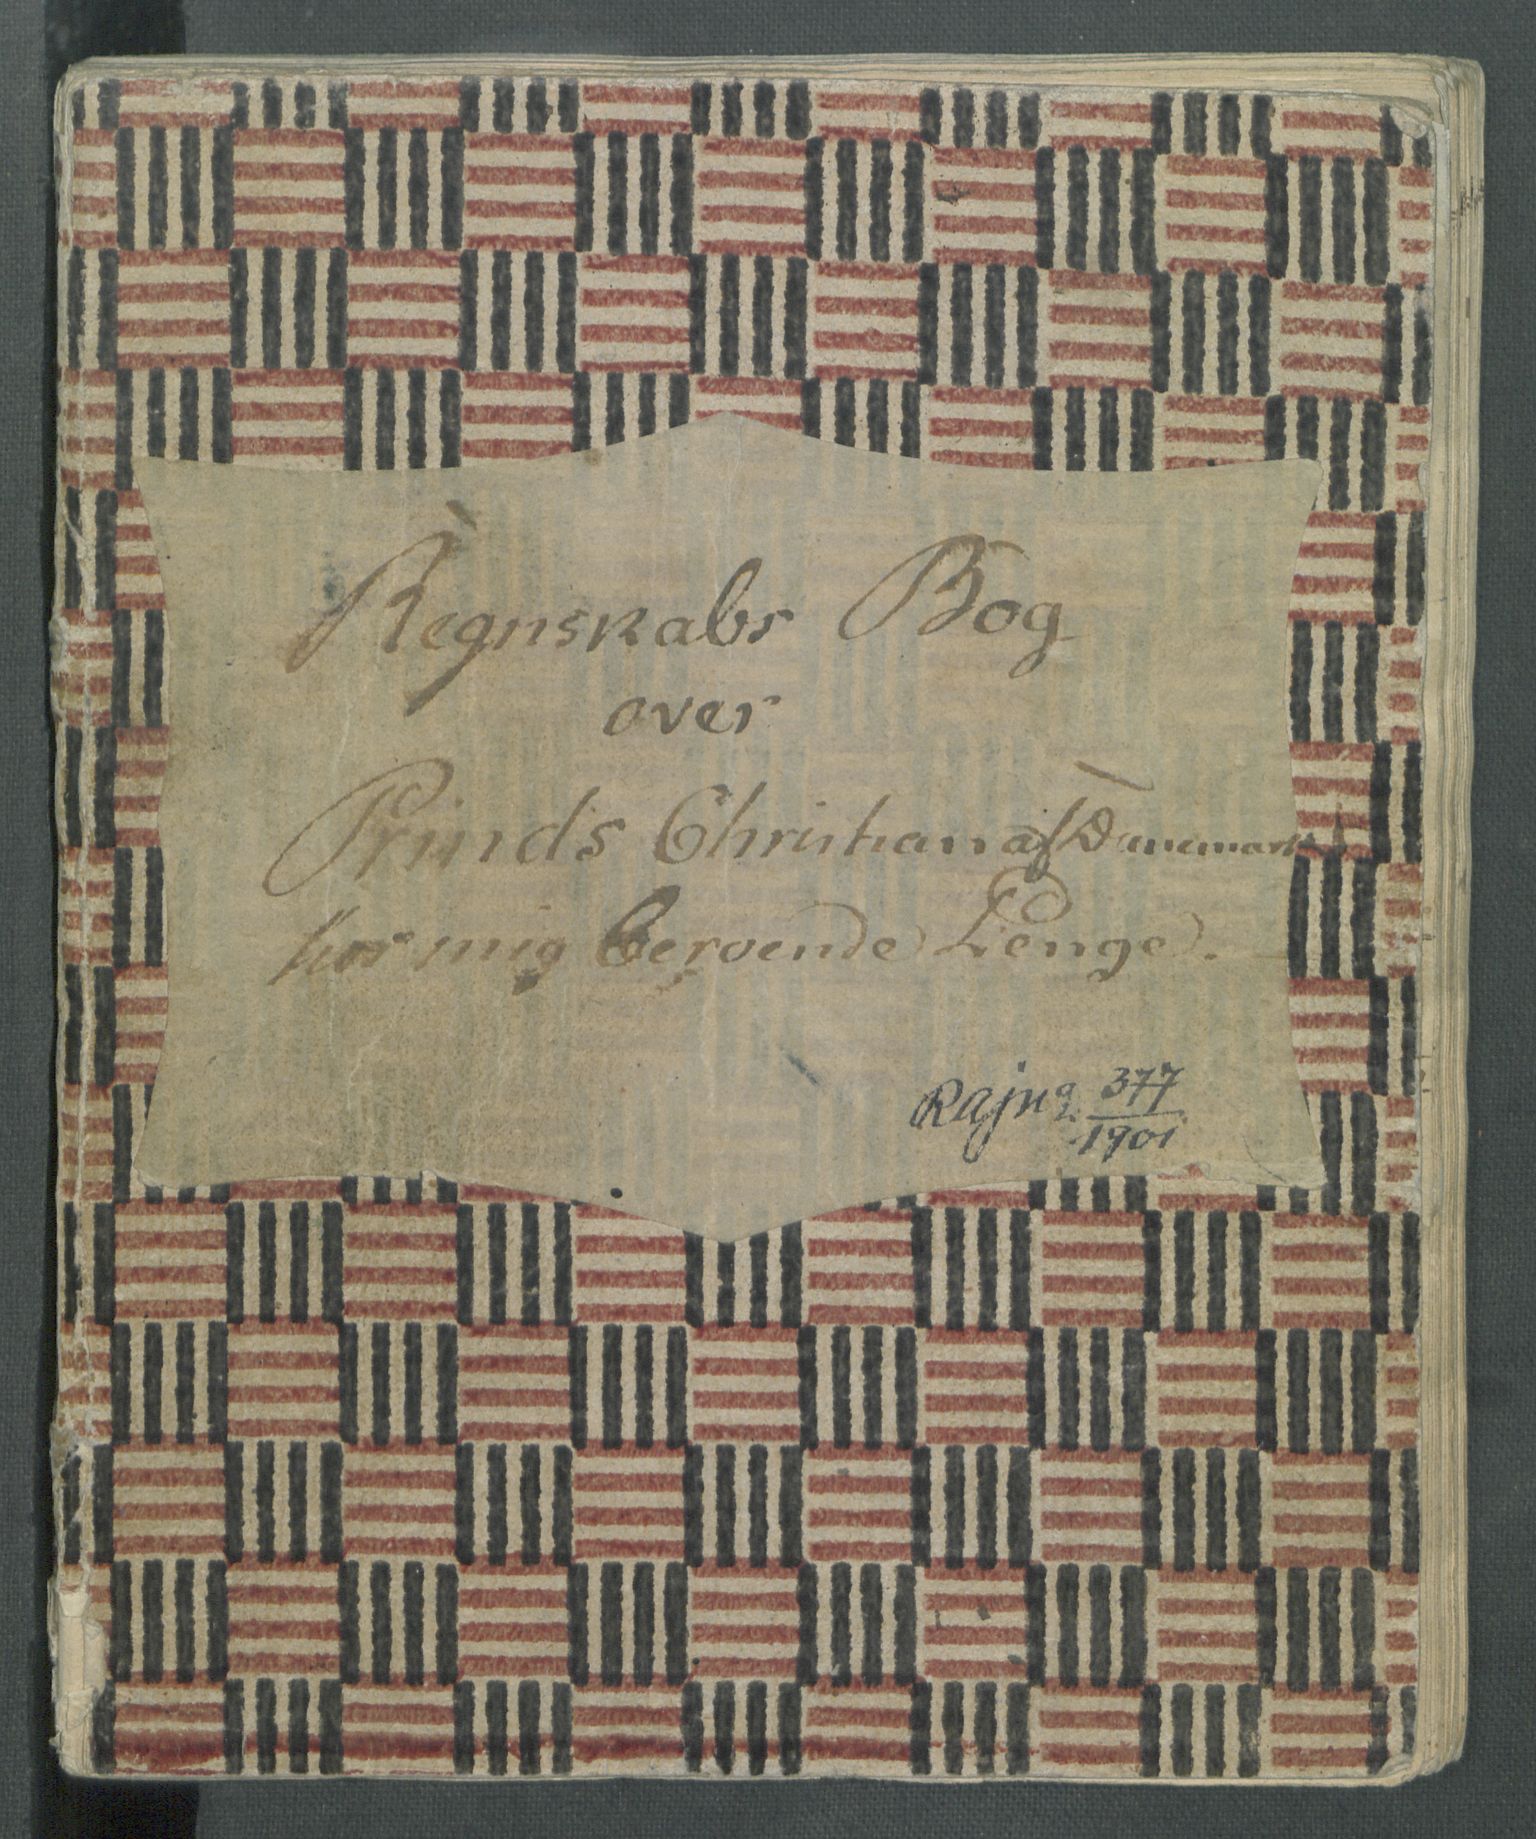 Regnskabs Bog
over
Prinds Christian af Dannemark
hos mig beroende Penge.
Rajng. 377
1901